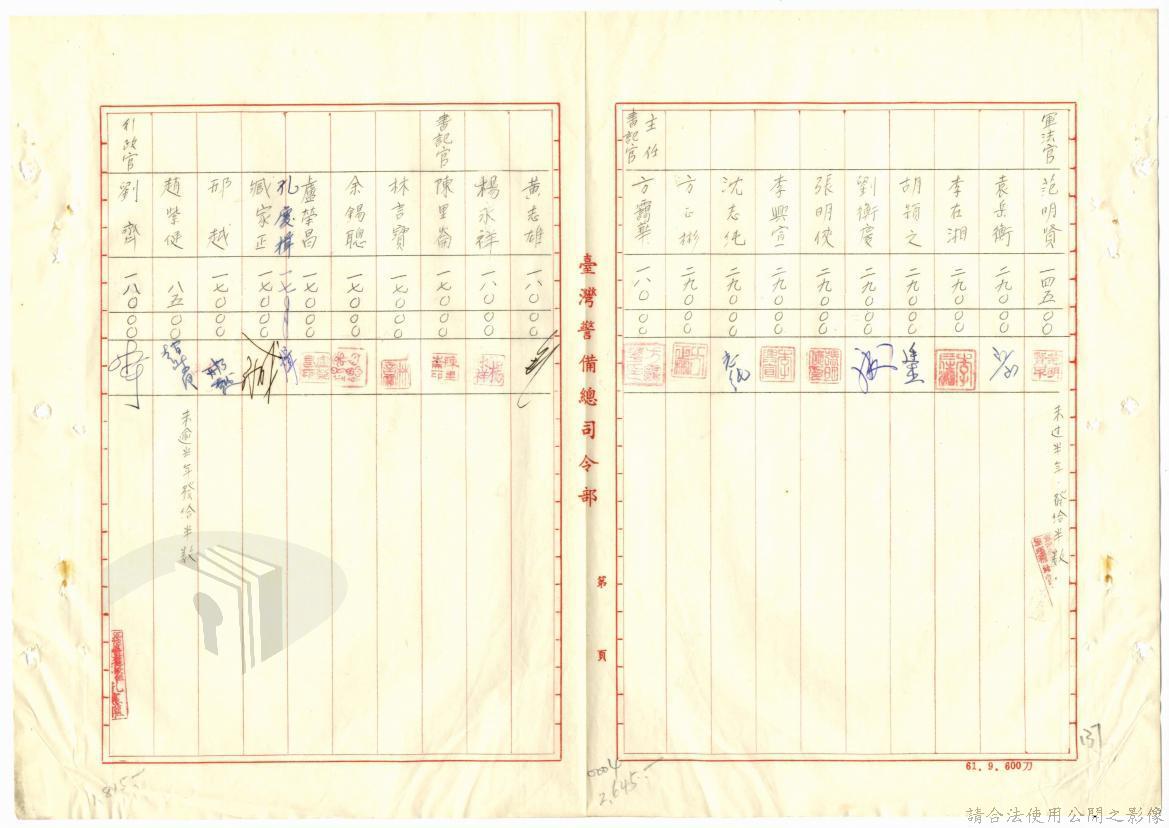 軍法官 范明賢 一四五〇〇 未过半年．發给半数．
袁岳衡 二九〇〇〇
李在湘 二九〇〇〇
胡頴之 二九〇〇〇
劉衡慶 二九〇〇〇
張明俊 二九〇〇〇
李興宣 二九〇〇〇
沈志纯 二九〇〇〇
方正彬 二九〇〇〇
主任書記官 方靄華 一八〇〇〇
臺灣警備總司令部
第 頁
黃志雄 一八〇〇〇
楊永祥 一八〇〇〇
書記官 陳里崙 一七〇〇〇
林言寶 一七〇〇〇
余錫聰 一七〇〇〇
盧榮昌 一七〇〇〇
孔慶揖 一七〇
臧家正 一七〇〇〇
邢越 一七〇〇〇
趙榮健 八五〇〇 未逾半年發给半数
行政官 劉齊 一八〇〇〇
1,815.-
0004
2,645.-
137
61.9.600刀
請合法使用公開之影像